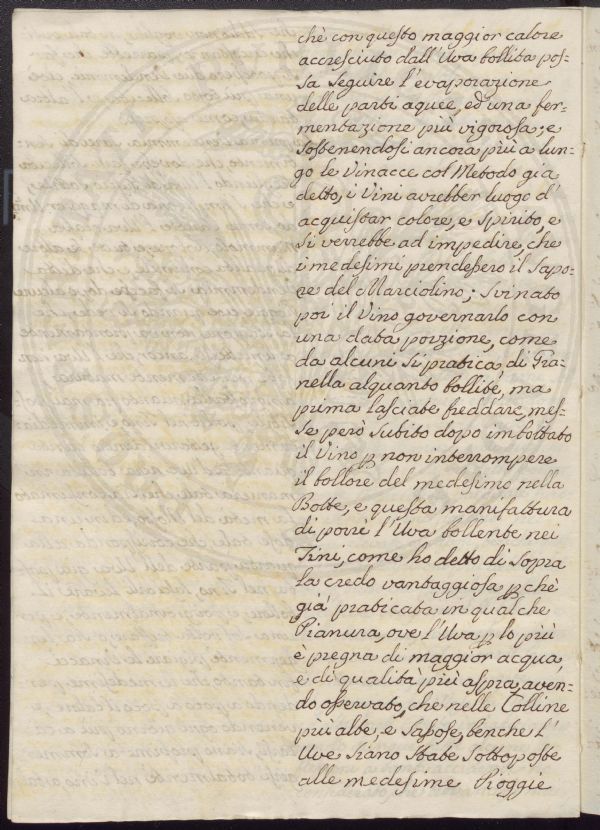 chè con questo maggior calore
accresciuto dall'Uva bollita pos=
sa seguire l'evaporazione
delle parti aquee, ed una fer=
mentazione più vigorosa; e
sostenendosi ancora più a lun=
go le Vinacce col Metodo gia
detto, i Vini avrebber luogo d'
acquistar colore, e Spirito, e
si verrebbe ad impedire, che
i medesimi prendessero il Sapo=
re del Marciolino; Svinato
poi il Vino governarlo con
una data porzione, come
da alcuni si pratica, di Gra=
nella alquanto bollite, ma
prima lasciate freddare, mes=
se però subito dopo imbottato
il Vino p non interrompere
il bollore del medesimo nella
Botte, e questa manifattura
di porre l'Uva bollente nei
Tini, come ho detto di Sopra
la credo vantaggiosa p chè
già praticata in qualche
Pianura, ove l'Uva p lo più
è pregna di maggior acqua,
e di qualità più aspra, aven=
do osservato, che nelle Colline
più alte, e Sassose, benche l'
Uve siano State Sottoposte
alle medesime Pioggie